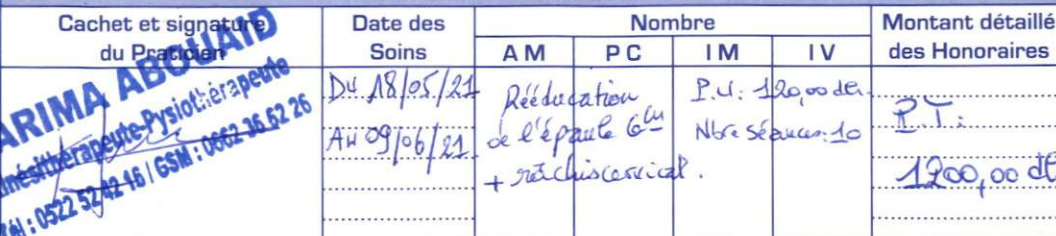 Cachet et signature du Praticien
Date des Soins
Nombre
Montant détaillé des Honoraires
AM PC IM IV
ARIMA ABOUAID
Kinésithérapeute-Pysiothérapeute
Tél : 0522 52 42 16 / GSM : 0662 36 52 26
Du 18/05/21
Au 09/06/21
Rééducation
de l'épaule
+ rachis cervical.
P.U: 120,00 dh
Nbre Séances: 10
P.T:
1200,00 dh